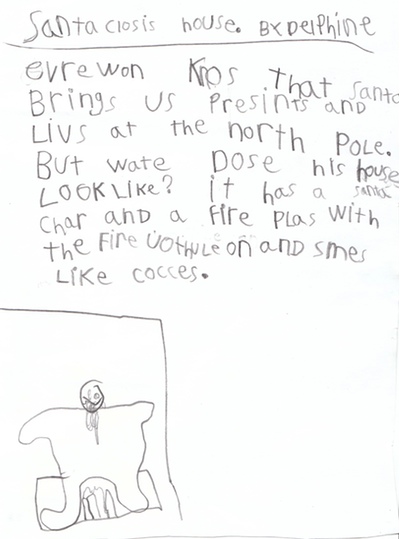 Santa closis house. By Delphine
evrewon Knos that santa
Brings us Presints and
Livs at the north Pole.
But wate Dose his house
LOOK LIKe? it has a santa
Char and a fire Plas with
the fire on and smes
Like cocces.